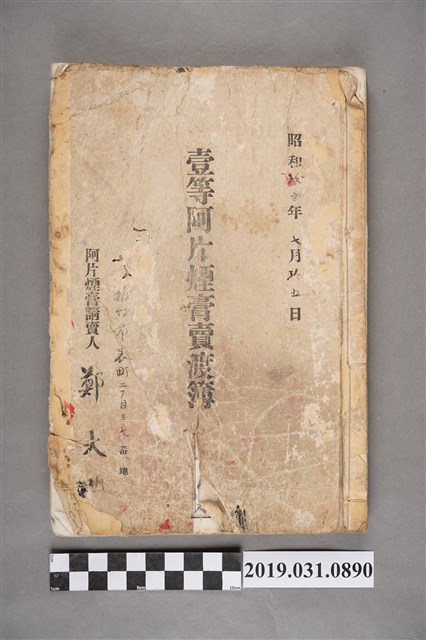 昭和拾年七月拾五日
壹等阿片煙膏賣渡簿
新竹市表町二丁目 番地
阿片煙膏請賣人
鄭大明
2019.031.0890